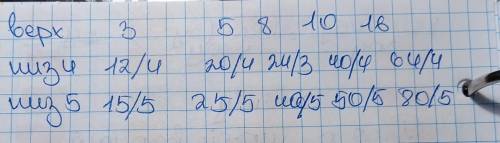 верх 3 5 8 10 16
низ 4 12/4 20/4 24/3 40/4 64/4
низ 5 15/5 25/5 40/5 50/5 80/5